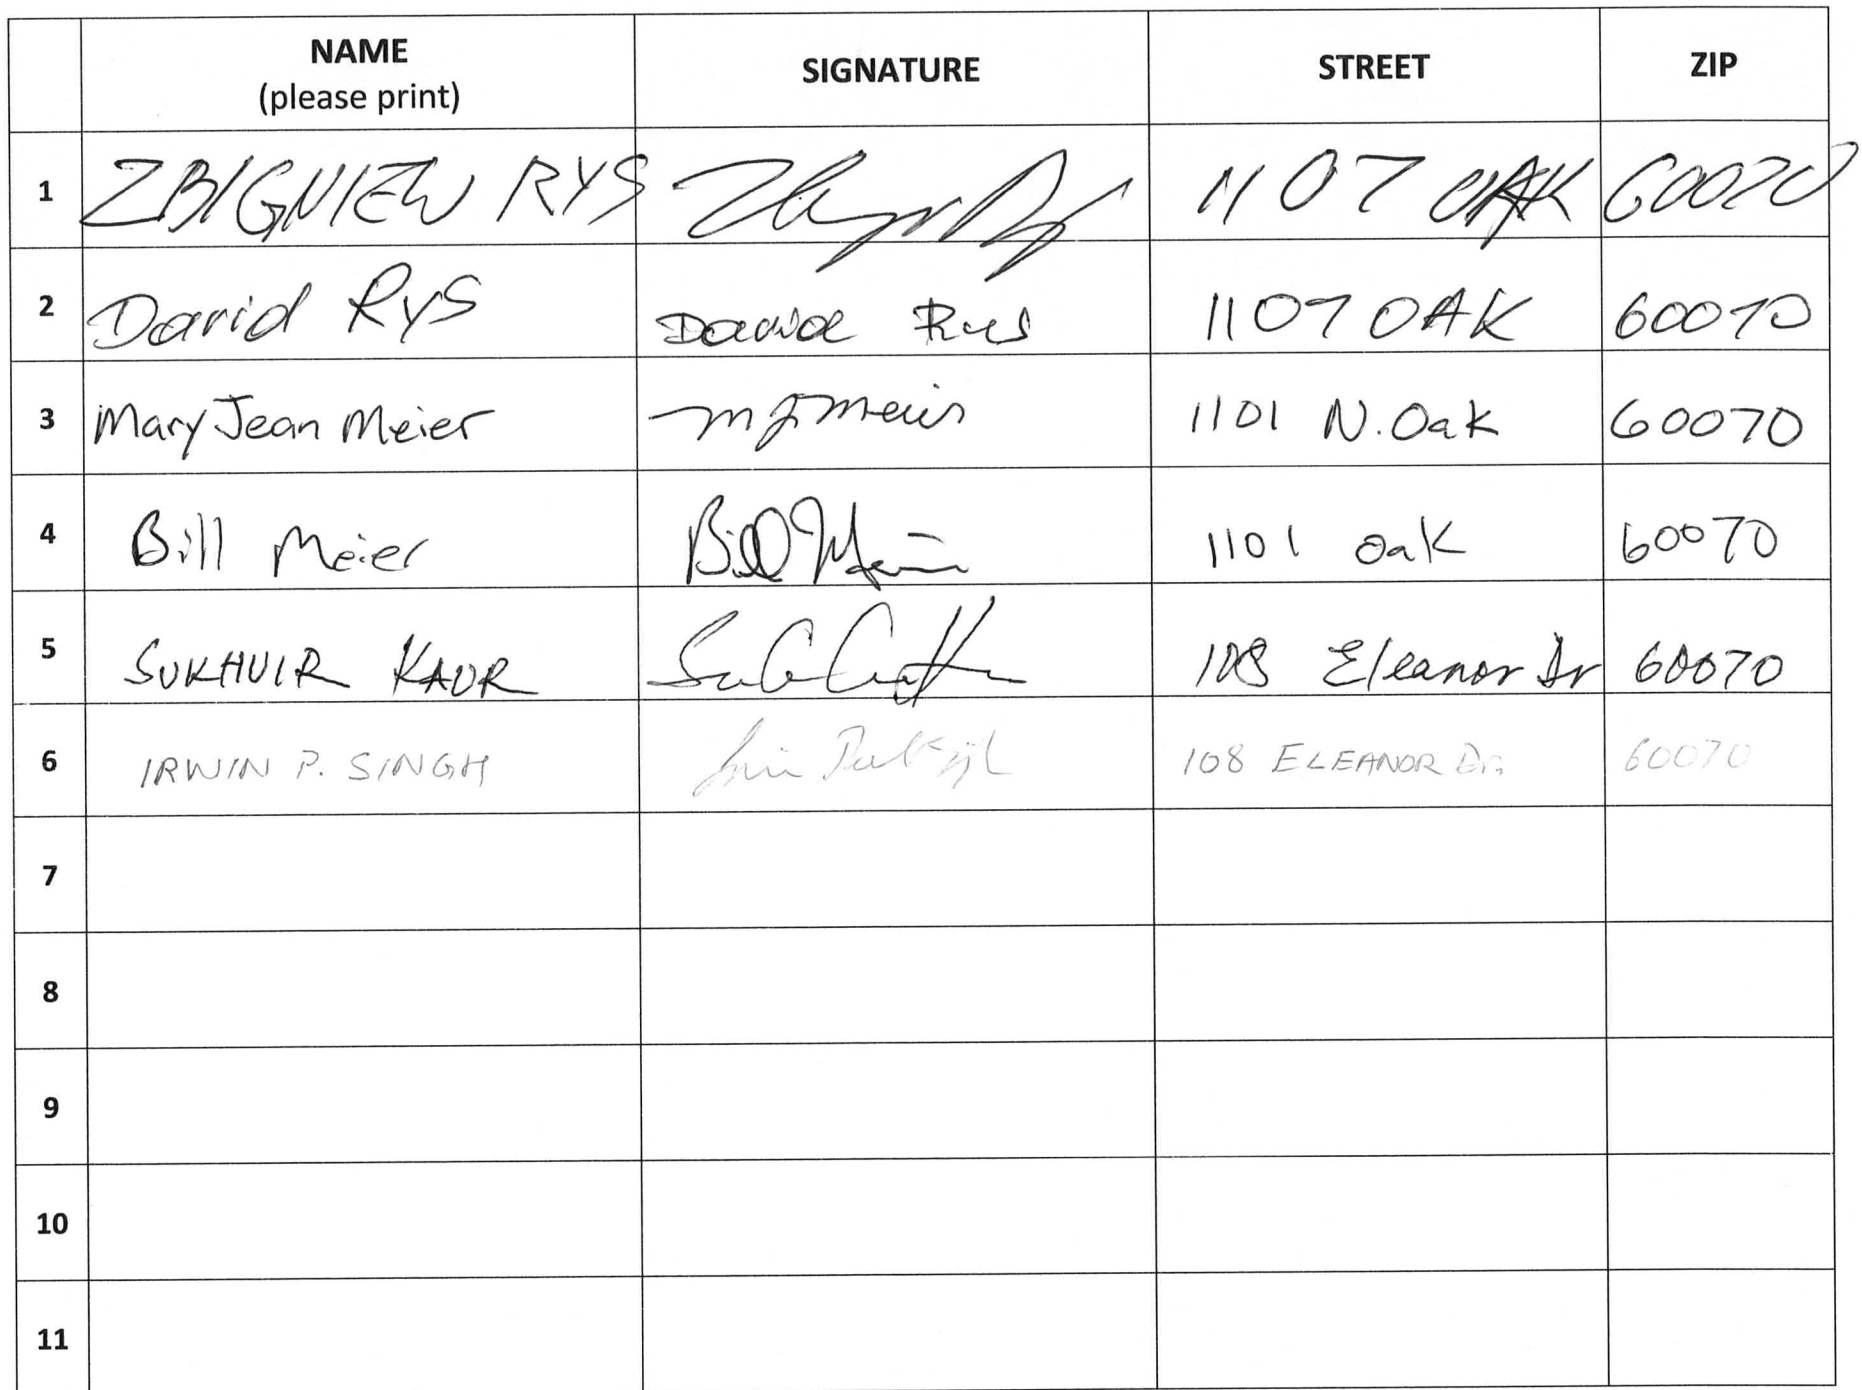 NAME SIGNATURE STREET ZIP
(please print)
1 ZBIGNIEW RYS 1107 OAK 60070
2 David RYS David Rys 1107 OAK 60070
3 Mary Jean Meier MJMeier 1101 N. Oak 60070
4 Bill Meier Bill Meier 1101 Oak 60070
5 SUKHVIR KAUR 108 Eleanor Dr 60070
6 IRWIN P. SINGH 108 ELEANOR Dr. 60070
7
8
9
10
11